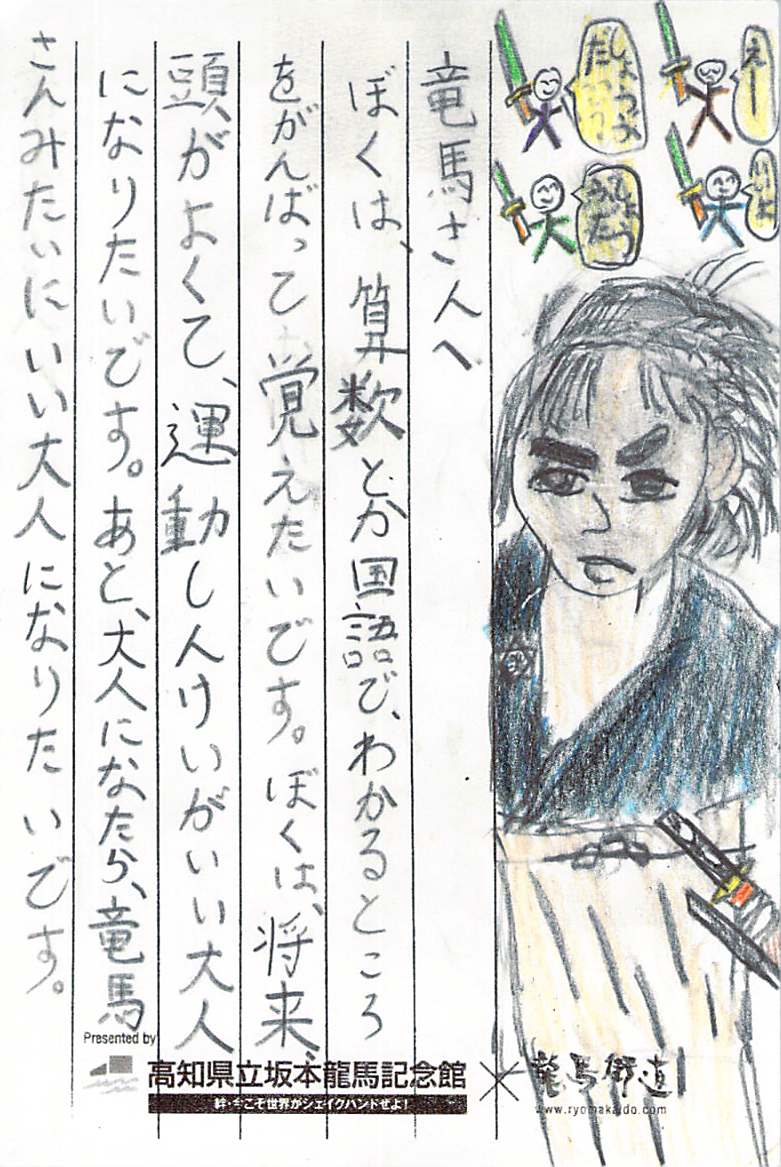 えー
竜馬さんへ
ぼくは、算数とか国語で、わかるところ
をがんばって覚えたいです。ぼくは、将来、
頭がよくて、運動しんけいがいい大人
になりたいです。あと、大人になたら、竜馬
さんみたいにいい大人になりたいです。
Presented by
高知県立坂本龍馬記念館
世界がシェイクハンドせよ!
龍馬街道
www.ryomakaido.com